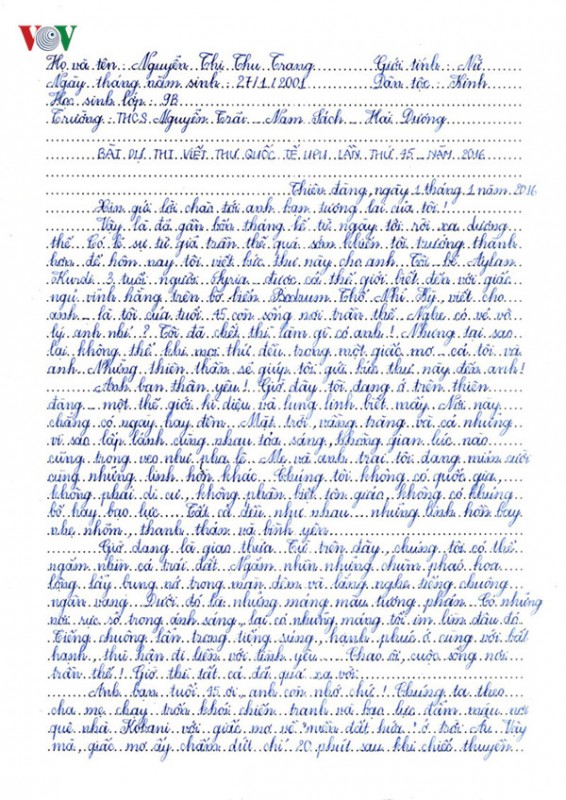 VOV
Họ và tên: Nguyễn Thị Thu Trang Giới tính: Nữ
Ngày tháng năm sinh: 27/1/2001 Dân tộc: Kinh
Học sinh lớp: 9B
Trường: THCS Nguyễn Trãi - Nam Sách - Hải Dương
BÀI DỰ THI VIẾT THƯ QUỐC TẾ UPU LẦN THỨ 45 NĂM 2016
Thiên đàng, ngày 1 tháng 1 năm 2016
Xin gửi lời chào tới anh bạn tương lai của tôi!
Vậy là đã gần bốn tháng kể từ ngày tôi rời xa dương
thế. Có lẽ sự từ giã trần thế quá sớm khiến tôi trưởng thành
hơn để hôm nay tôi viết bức thư này cho anh. Tôi - bé Aylan
Kurdi 3 tuổi người Syria được cả thế giới biết đến với giấc
ngủ vĩnh hằng trên bờ biển Bodrum Thổ Nhĩ Kỳ, viết cho
anh - là tôi của tuổi 45 còn sống nơi trần thế. Nghe có vẻ vô
lý anh nhỉ? Tôi đã chết thì làm gì có anh! Nhưng tại sao
lại không thể khi mọi thứ đều trong một giấc mơ - cả tôi và
anh. Những thiên thần sẽ giúp tôi gửi bức thư này đến anh!
Anh bạn thân yêu! Giờ đây tôi đang ở trên thiên
đàng - một thế giới kì diệu và lung linh biết mấy. Nơi này
chẳng có ngày hay đêm. Mặt trời, vầng trăng và cả những
vì sao lấp lánh cùng nhau tỏa sáng, không gian lúc nào
cũng trong veo như pha lê. Mẹ và anh trai tôi đang mỉm cười
cùng những linh hồn khác. Chúng tôi không có quốc gia,
không phải di cư, không phân biệt tôn giáo, không có khủng
bố hay bạo lực. Tất cả đều như nhau - những linh hồn bay
nhẹ nhõm, thanh thản và bình yên.
Giờ đang là giao thừa. Từ trên đây, chúng tôi có thể
ngắm nhìn cả trái đất. Ngắm nhìn những chùm pháo hoa
lộng lẫy bung nở trong màn đêm và lắng nghe tiếng chuông
ngân vang. Dưới đó là những mảng màu tương phản. Có những
nơi rực rỡ trong ánh sáng, lại có những mảng tối im lìm đâu đó.
Tiếng chuông lẫn trong tiếng súng, hạnh phúc ở cùng với bất
hạnh, thù hận đi liền với tình yêu. Chao ôi, cuộc sống nơi
trần thế! Giờ thì tất cả đã quá xa vời.
Anh bạn tuổi 45 ơi, anh còn nhớ chứ! Chúng ta theo
cha mẹ chạy trốn khỏi chiến tranh và bạo lực đẫm máu nơi
quê nhà Kobani với giấc mơ về "miền đất hứa" ở trời Âu. Vậy
mà, giấc mơ ấy chấm dứt chỉ 20 phút sau khi chiếc thuyền